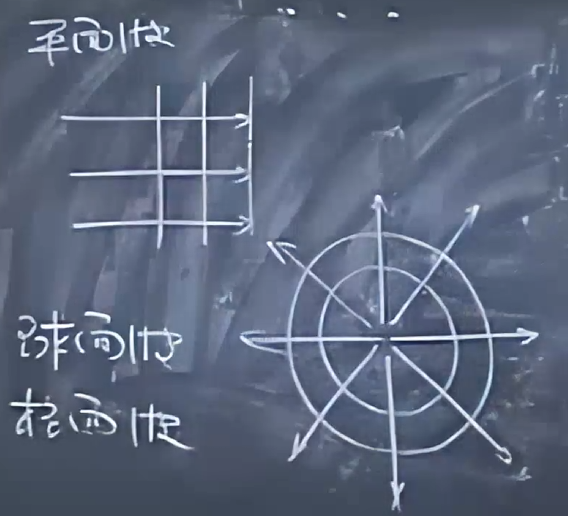 平面波
球面波
柱面波